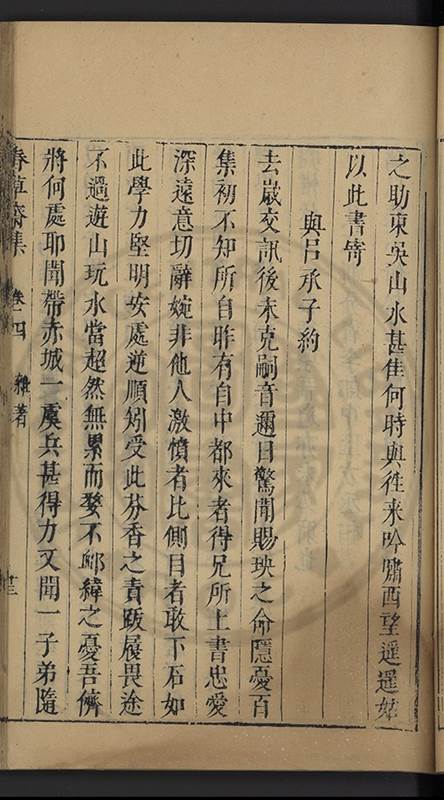 之助東吳山水甚佳何時與往来吟嘯西望遥遥姑
以此書寄
與吕承子約
去歲交訊後未克嗣音邇日驚聞賜玦之命隱憂百
集初不知所自昨有自中都來者得兄所上書忠愛
深遠意切辭婉非他人激憤者比側目者敢下石如
此學力堅明安處逆順矧受此芬香之責踐履畏途
不過遊山玩水當超然無累而嫠不邺緯之憂吾儕
將何處耶聞帶赤城一虞兵甚得力又聞一子弟隨
春草齋集 卷十四 雜著